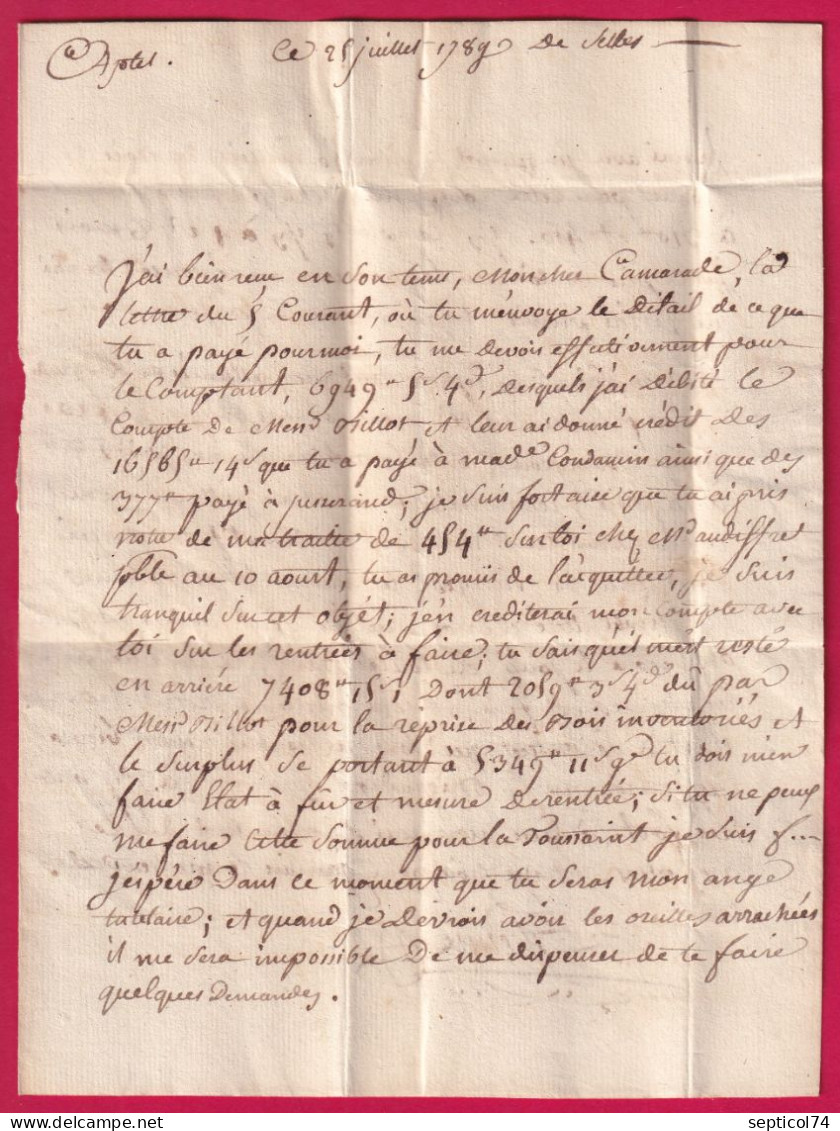 Ce 25 juillet 1789 de Selles
J'ai bien recu en son tems, Mon cher Camarade, la
lettre du 5 Courant, où tu m'envoye le Détail de ce que
tu a payé pour moi, tu me devois effectivement pour
le Comptant, 6949tt 5s 4d, desquels j'ai débité le
Compte de Messrs Billot et leur ai donné crédit des
16565tt 14s que tu a payé à made Condamin ainsi que des
377tt payé à Jusserand; je suis fort aise que tu ai pris
note de ma traite de 454tt sur toi chez Mr audiffret
pble au 10 aoust, tu as promis de l'acquitter, je suis
tranquil sur cet objet; j'en crediterai mon Compte avec
toi sur les rentrées à faire; tu sais qu'il m'ert resté
en arriére 7408tt 15s 1 Dont 2059tt 3s 4d dû par
Messrs Billot pour la reprise des Bois inventoriés et
le surplus se portant à 5349tt 11s 9d tu dois m'en
faire Etat à fur et mesure de rentrée; si tu ne peux
me faire cette somme pour la Toussaint je suis f...
j'éspére Dans ce moment que tu seras mon ange
tutelaire; et quand je devrois avoir les oreilles arrachées
il me sera impossible De me dispenser de te faire
quelques Demandes.
www.delcampe.net
septicol74